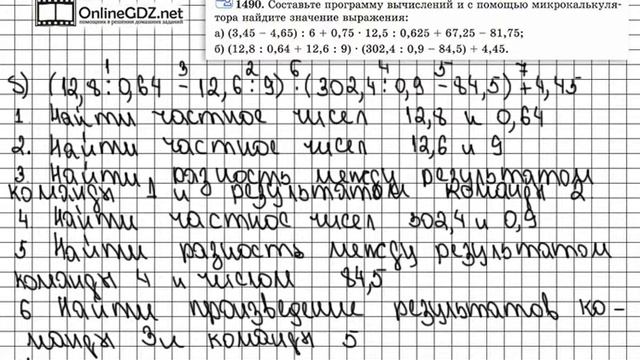 OnlineGDZ.net
помощник в решении домашних заданий
1490. Составьте программу вычислений и с помощью микрокалькуля-
тора найдите значение выражения:
а) (3,45 − 4,65) : 6 + 0,75 · 12,5 : 0,625 + 67,25 − 81,75;
б) (12,8 : 0,64 + 12,6 : 9) · (302,4 : 0,9 − 84,5) + 4,45.
1 3 2 6 4 5 7
б) (12,8 : 0,64 − 12,6 : 9) · (302,4 : 0,9 − 84,5) + 4,45
1 Найти частное чисел 12,8 и 0,64
2. Найти частное чисел 12,6 и 9
3 Найти разность между результатом
команды 1 и результатом команды 2
4 Найти частное чисел 302,4 и 0,9
5 Найти разность между результатом
команды 4 и числом 84,5
6 Найти произведение результатов ко-
манды 3 и команды 5